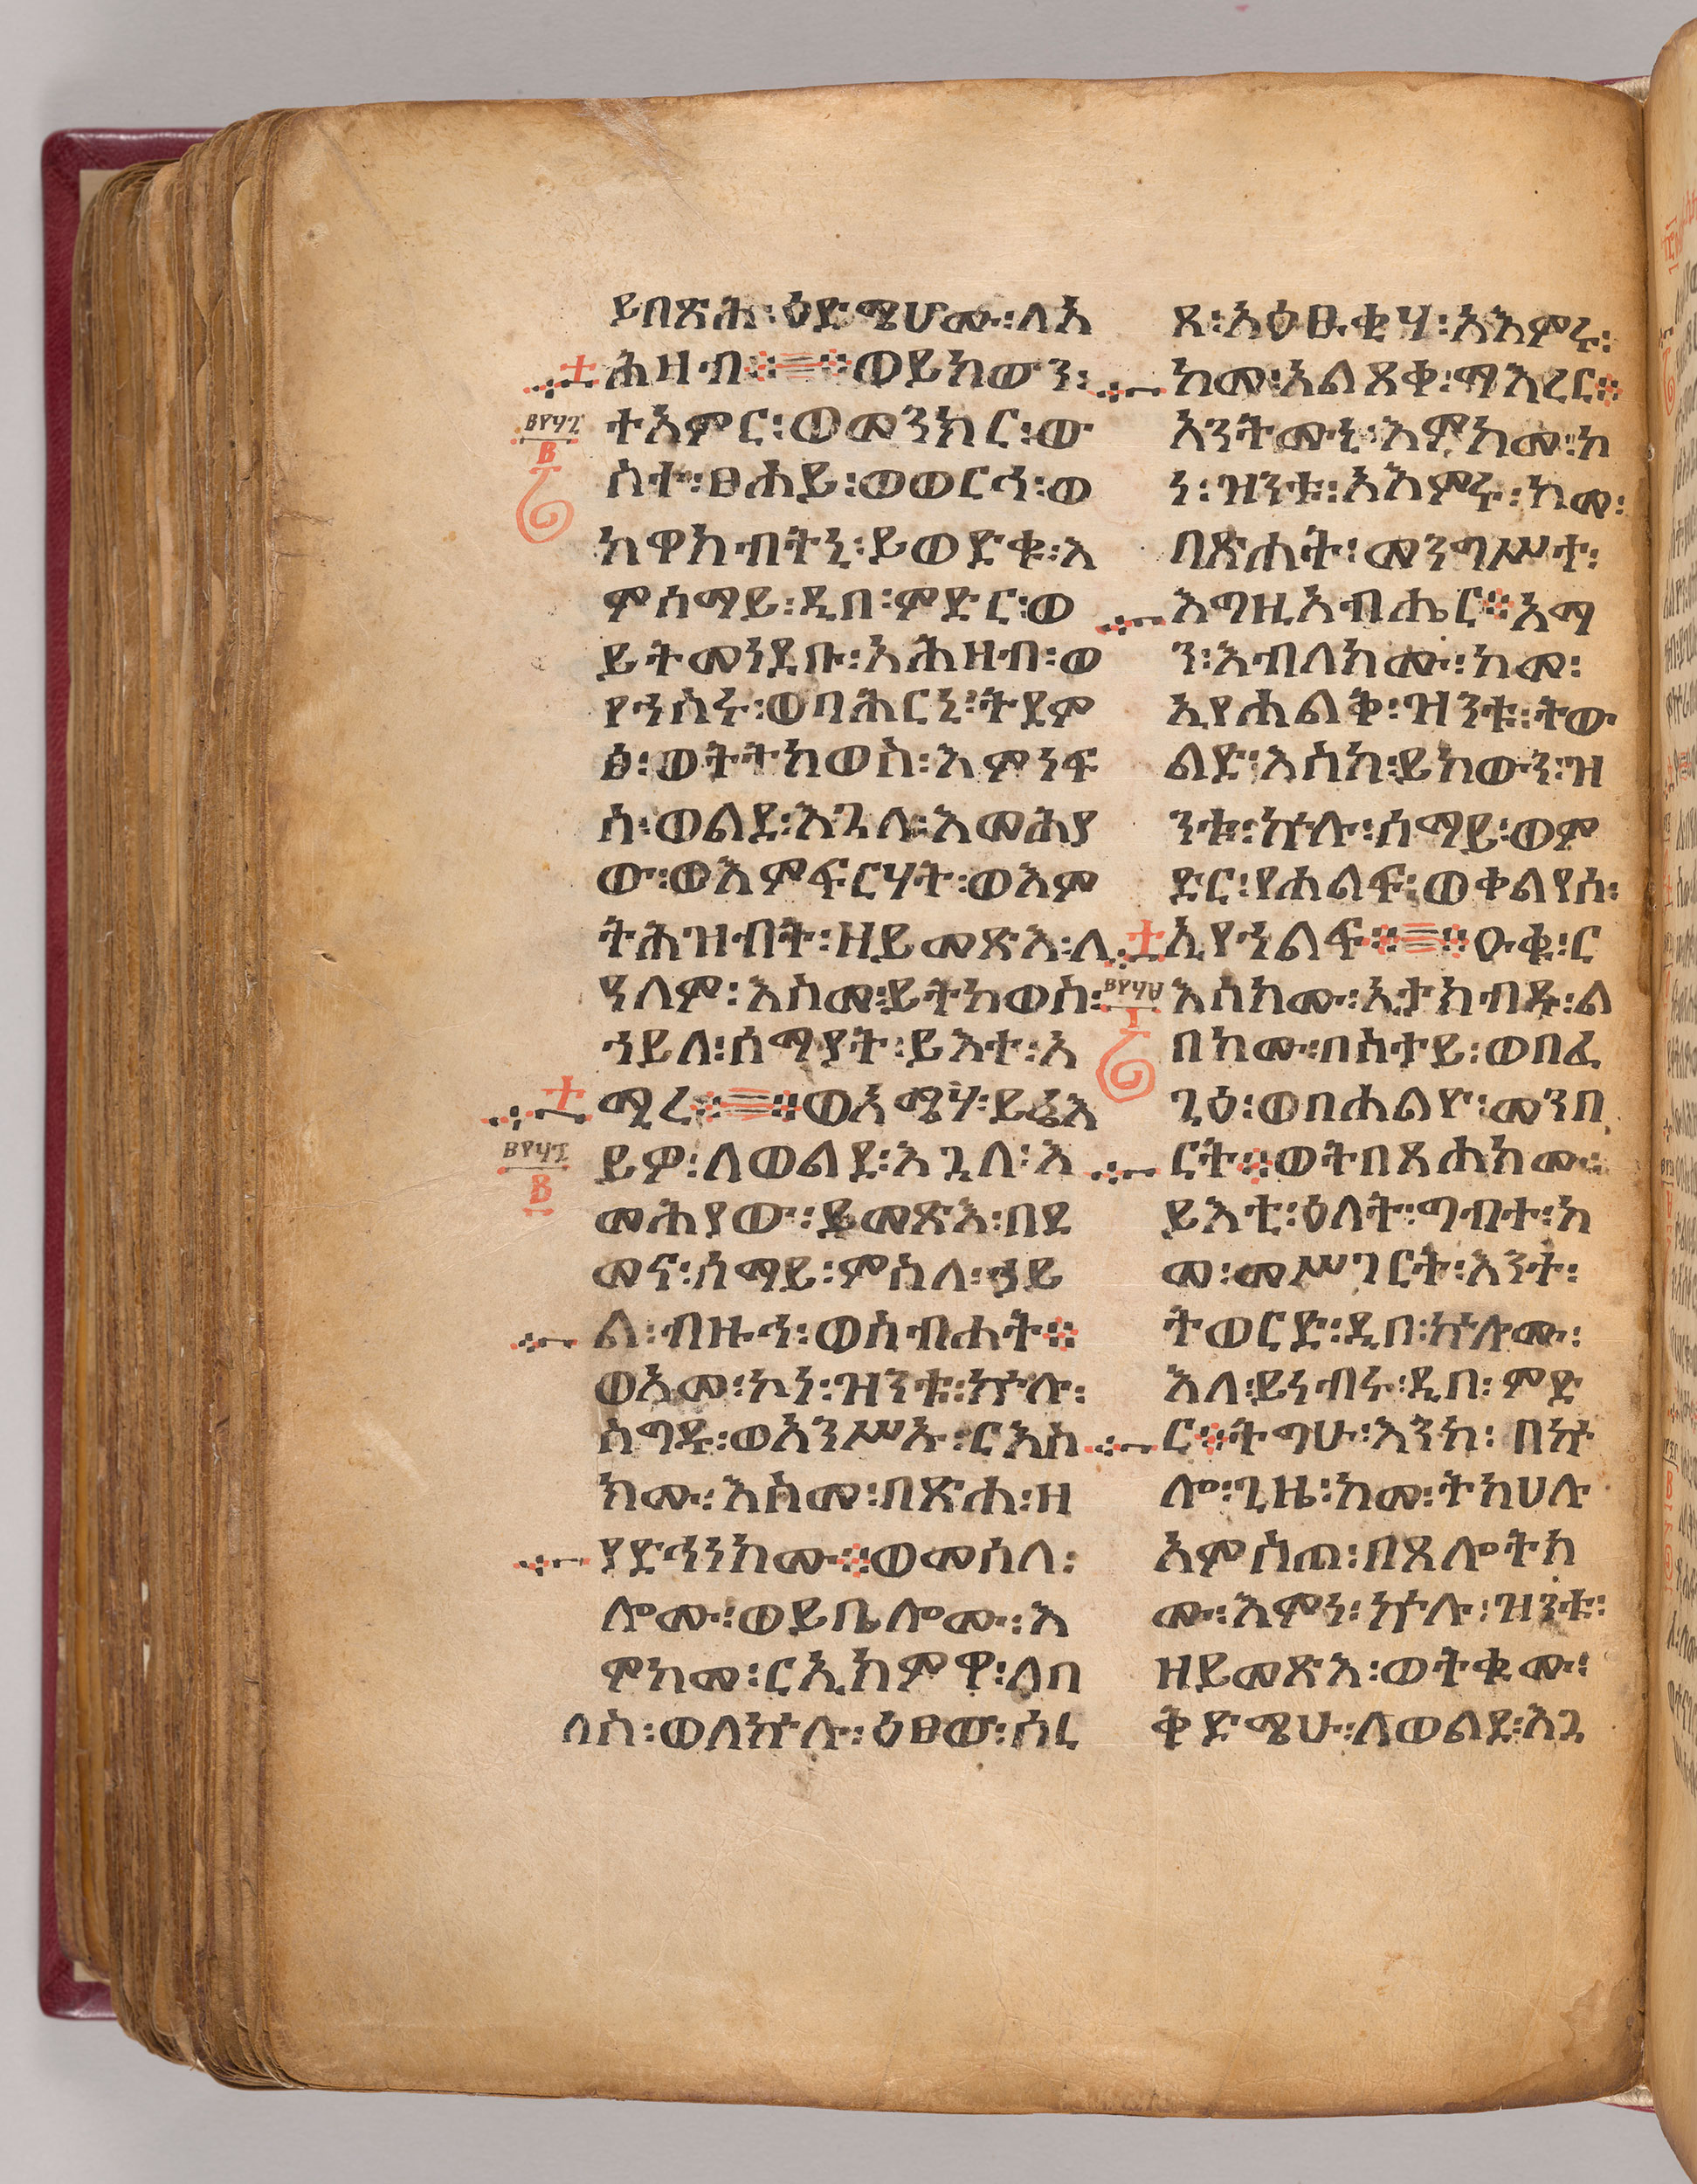 ይበጽሕ፡ዕድሜሆሙ፡ለአ
ሕዛብ፨ወይከውን፡
ተአምር፡ወመንክር፡ው
ስተ፡ፀሐይ፡ወወርኅ፡ወ
ከዋክብትኒ፡ይወድቁ፡እ
ምሰማይ፡ዲበ፡ምድር፡ወ
ይትመነደቡ፡አሕዛብ፡ወ
የኀስሩ፡ወባሕርኒ፡ትደም
ፅ፡ወትትከወስ፡እምነፍ
ሰ፡ወልደ፡እጓለ፡እመሕያ
ው፡ወእምፍርሃት፡ወእም
ትሕዝብት፡ዘይመጽእ፡ለ
ዓለም፡እስመ፡ይትከወስ፡
ኀይለ፡ሰማያት፡ይእተ፡አ
ሚረ፨ወአሜሃ፡ይሬእ
ይዎ፡ለወልደ፡እጓለ፡እ
መሕያው፡ይመጽእ፡በደ
መና፡ሰማይ፡ምስለ፡ኃይ
ል፡ብዙኅ፡ወስብሐት፨
ወአመ፡ኮነ፡ዝንቱ፡ኵሉ፡
ስግዱ፡ወአንሥኡ፡ርእስ
ክሙ፡እስመ፡በጽሐ፡ዘ
ያድኅነክሙ፨ወመሰለ፡
ሎሙ፡ወይቤሎሙ፡እ
ምከመ፡ርኢክምዋ፡ለበ
ለስ፡ወለኵሉ፡ዕፀው፡ሰረ
ጸ፡አዕፁቂሃ፡አእምሩ፡
ከመ፡አልጸቀ፡ማእረር፨
አንትሙኒ፡እምከመ፡ኮ
ነ፡ዝንቱ፡አእምሩ፡ከመ፡
በጽሐት፡መንግሥተ፡
እግዚአብሔር፨አማ
ን፡እብለክሙ፡ከመ፡
ኢየሐልቅ፡ዝንቱ፡ትው
ልድ፡እስከ፡ይከውን፡ዝ
ንቱ፡ኵሉ፡ሰማይ፡ወም
ድር፡የሐልፍ፡ወቀልየሰ፡
ኢየኀልፍ፨ዑቁ፡ር
እሰክሙ፡ኢታክብዱ፡ል
በክሙ፡በስተይ፡ወበፈ
ጊዕ፡ወበሐልዮ፡መንበ
ርት፨ወትበጸሐክሙ፡
ይእቲ፡ዕለት፡ግብተ፡ከ
መ፡መሥገርት፡እንተ፡
ትወርድ፡ዲበ፡ኵሎሙ፡
እለ፡ይነብሩ፡ዲበ፡ምድ
ር፨ትግሁ፡እንከ፡በኵ
ሎ፡ጊዜ፡ከመ፡ትክሀሉ
አምስጦ፡በጸሎትክ
ሙ፡እምነ፡ኵሉ፡ዝንቱ፡
ዘይመጽእ፡ወትቁሙ፡
ቅድሜሁ፡ለወልደ፡እጓ